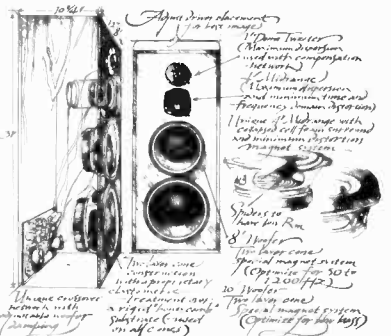 10¾"
Adjust driver placement
for best image
1" Dome Tweeter
(Maximum dispersion
used with compensation
network)
Midrange
(Maximum dispersion
and minimum time and
frequency domain distortion)
Unique Midrange with
collapsed cell foam surround
and minimum distortion
magnet system
Spiders to
have low Rm
8" Woofer
Two layer cone
special magnet system
(Optimize for 50 to
1200 Hz)
10" Woofer
Two layer cone
Special magnet system
(Optimize for low bass)
Two layer cone
construction
with proprietary
Treatment over
a rigid
Substrate (used
on all cones)
Unique crossover
network with
adjustable woofer
damping